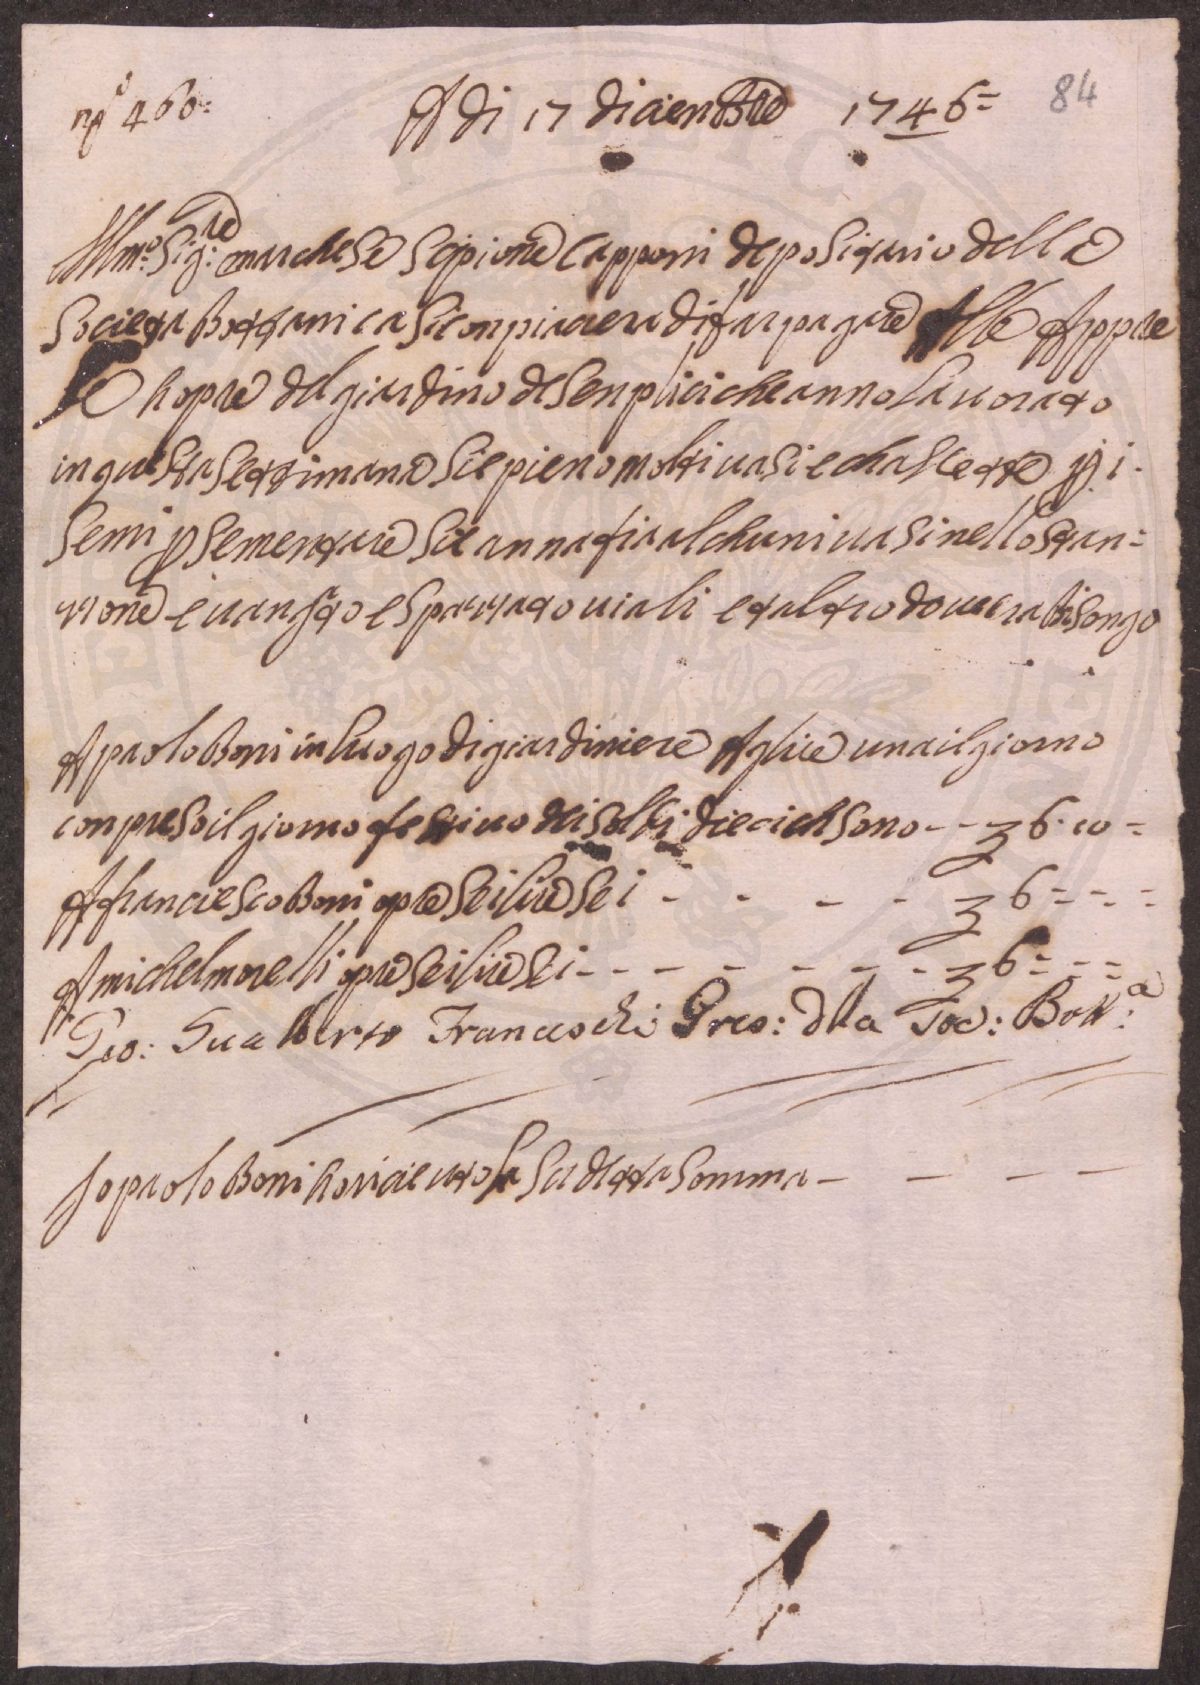 nº 460:
A di 17 diciembre 1746= 84
Illmo: Sigre: marchese Scipione Capponi depositario della
Societa Bottanica si conpiacera di far pagare Alle Appare
le hopre del giardino de Senplici che anno lavorato
in questa settimana si e pieno molti vasi e chassette p i.
Semi p sementare si e annafiaalchuni vasi nello stan=
zione e vangto e spazzato viali et altro dovera bisongo
A paolo Boni in luogo di giardiniere A lire una il giorno
conpreso il giorno festivo di soldi dieci che sono - - 6. 10 =
A franciescho Boni opre sei lire sei - - - - 6 = - =
A michel morelli opre sei lire sei - - - - - - - 6 = - - =
Gio: Gualberto Franceschi Pres: dla Soc: Botta:
Io paolo Boni ho riceuto la su detta somma - - - -